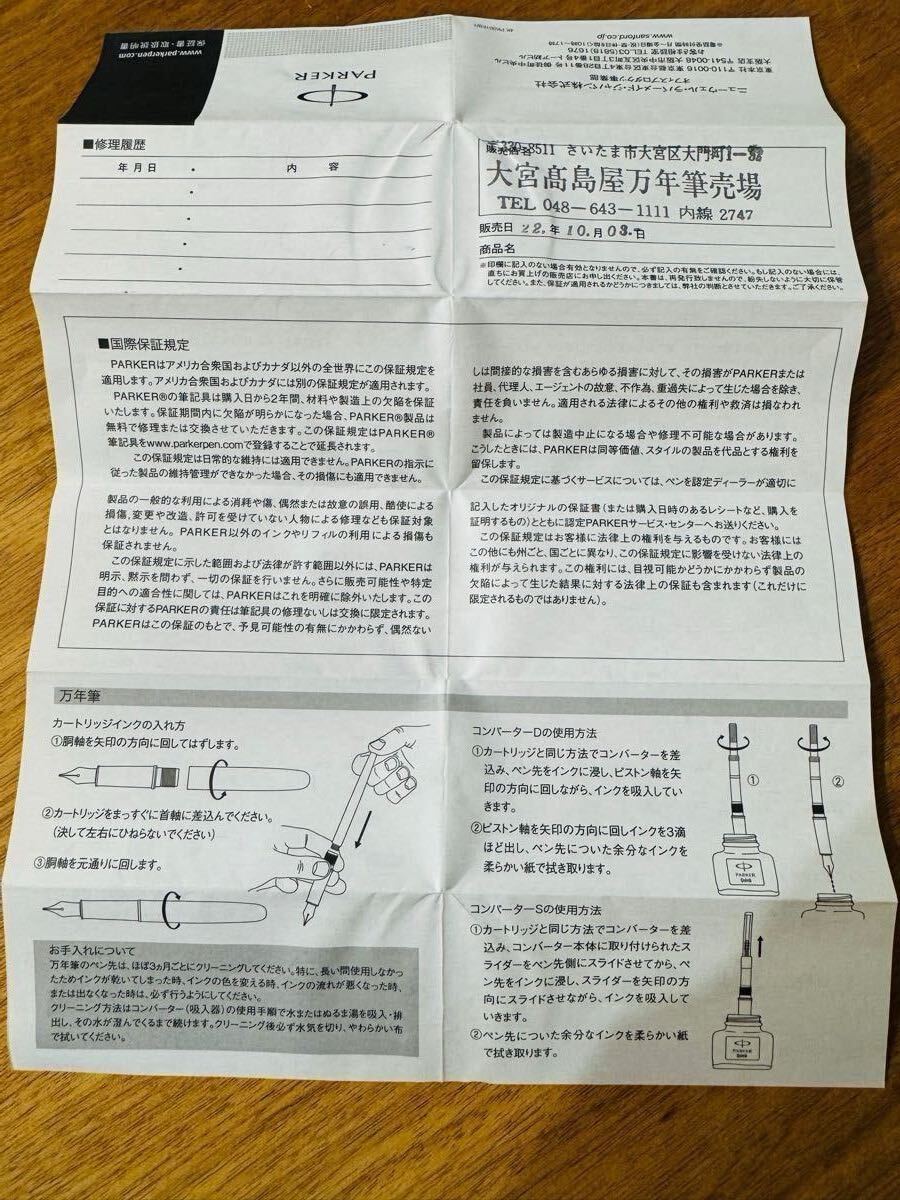 保証書・取扱説明書
www.parkerpen.com
PARKER
ニューウェル・ラバーメイド・ジャパン株式会社
オフィスプロダクツ事業部
www.sanford.co.jp
■修理履歴
年月日 内 容
販売店名
〒330-8511 さいたま市大宮区大門町1-32
大宮髙島屋万年筆売場
TEL 048-643-1111 内線 2747
販売日 22.年 10.月 03.日
商品名
※印欄に記入のない場合有効となりませんので、必ず記入の有無をご確認ください。もし記入のない場合には、
直ちにお買上げの販売店にお申し出ください。本書は、再発行致しませんので、紛失しないように大切に保管
してください。また、保証が適用されるかどうかにつきましては、弊社の判断とさせていただきます。ご了承ください。
■国際保証規定
PARKERはアメリカ合衆国およびカナダ以外の全世界にこの保証規定を
適用します。アメリカ合衆国およびカナダには別の保証規定が適用されます。
PARKER®の筆記具は購入日から2年間、材料や製造上の欠陥を保証
いたします。保証期間内に欠陥が明らかになった場合、PARKER®製品は
無料で修理または交換させていただきます。この保証規定はPARKER®
筆記具をwww.parkerpen.comで登録することで延長されます。
この保証規定は日常的な維持には適用できません。PARKERの指示に
従った製品の維持管理ができなかった場合、その損傷にも適用できません。
製品の一般的な利用による消耗や傷、偶然または故意の誤用、酷使による
損傷,変更や改造、許可を受けていない人物による修理なども保証対象
とはなりません。PARKER以外のインクやリフィルの利用による損傷も
保証されません。
この保証規定に示した範囲および法律が許す範囲以外には、PARKERは
明示、黙示を問わず、一切の保証を行いません。さらに販売可能性や特定
目的への適合性に関しては、PARKERはこれを明確に除外いたします。この
保証に対するPARKERの責任は筆記具の修理ないしは交換に限定されます。
PARKERはこの保証のもとで、予見可能性の有無にかかわらず、偶然ない
しは間接的な損害を含むあらゆる損害に対して、その損害がPARKERまたは
社員、代理人、エージェントの故意、不作為、重過失によって生じた場合を除き、
責任を負いません。適用される法律によるその他の権利や救済は損なわれ
ません。
製品によっては製造中止になる場合や修理不可能な場合があります。
こうしたときには、PARKERは同等価値、スタイルの製品を代品とする権利を
留保します。
この保証規定に基づくサービスについては、ペンを認定ディーラーが適切に
記入したオリジナルの保証書（または購入日時のあるレシートなど、購入を
証明するもの）とともに認定PARKERサービス・センターへお送りください。
この保証規定はお客様に法律上の権利を与えるものです。お客様には
この他にも州ごと、国ごとに異なり、この保証規定に影響を受けない法律上の
権利が与えられます。この権利には、目視可能かどうかにかかわらず製品の
欠陥によって生じた結果に対する法律上の保証も含まれます（これだけに
限定されるものではありません）。
万年筆
カートリッジインクの入れ方
①胴軸を矢印の方向に回してはずします。
②カートリッジをまっすぐに首軸に差込んでください。
（決して左右にひねらないでください）
③胴軸を元通りに回します。
お手入れについて
万年筆のペン先は、ほぼ3ヵ月ごとにクリーニングしてください。特に、長い間使用しなかっ
たためインクが乾いてしまった時、インクの色を変える時、インクの流れが悪くなった時、
または出なくなった時は、必ず行うようにしてください。
クリーニング方法はコンバーター（吸入器）の使用手順で水またはぬるま湯を吸入・排
出し、その水が澄んでくるまで続けます。クリーニング後必ず水気を切り、やわらかい布
で拭いてください。
コンバーターDの使用方法
①カートリッジと同じ方法でコンバーターを差
込み、ペン先をインクに浸し、ピストン軸を矢
印の方向に回しながら、インクを吸入してい
きます。
②ピストン軸を矢印の方向に回しインクを3滴
ほど出し、ペン先についた余分なインクを
柔らかい紙で拭き取ります。
①
②
PARKER
Quink
コンバーターSの使用方法
①カートリッジと同じ方法でコンバーターを差
込み、コンバーター本体に取り付けられたス
ライダーをペン先側にスライドさせてから、ペ
ン先をインクに浸し、スライダーを矢印の方
向にスライドさせながら、インクを吸入して
いきます。
②ペン先についた余分なインクを柔らかい紙
で拭き取ります。
PARKER
Quink